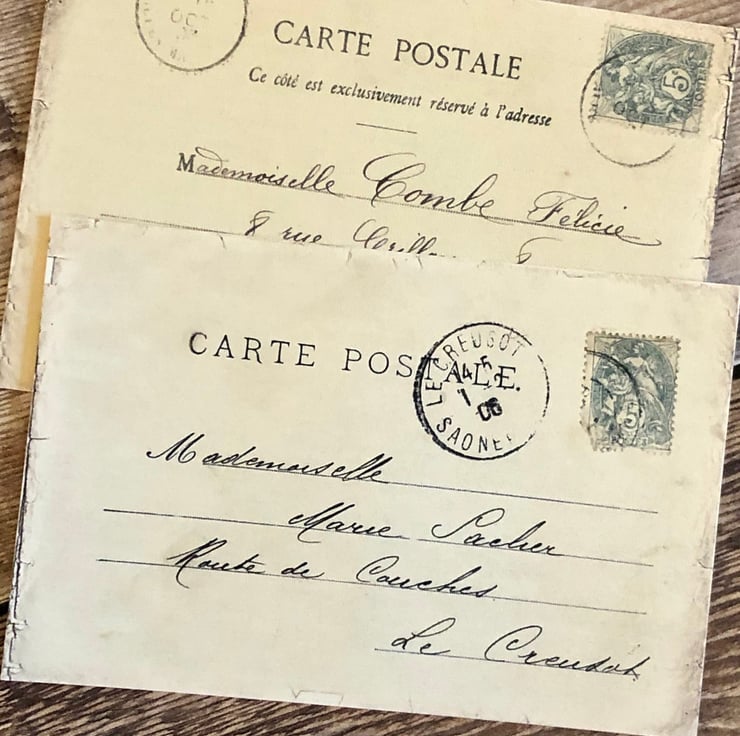 OC
CARTE POSTALE
5c
Ce côté est exclusivement réservé à l'adresse
Mademoiselle Combe Félicie
8 rue
CARTE POSTALE.
LE CREUSOT
1 06
SAONE
5c
Mademoiselle
Marie Pacher
Route de Couches
Le Creusot